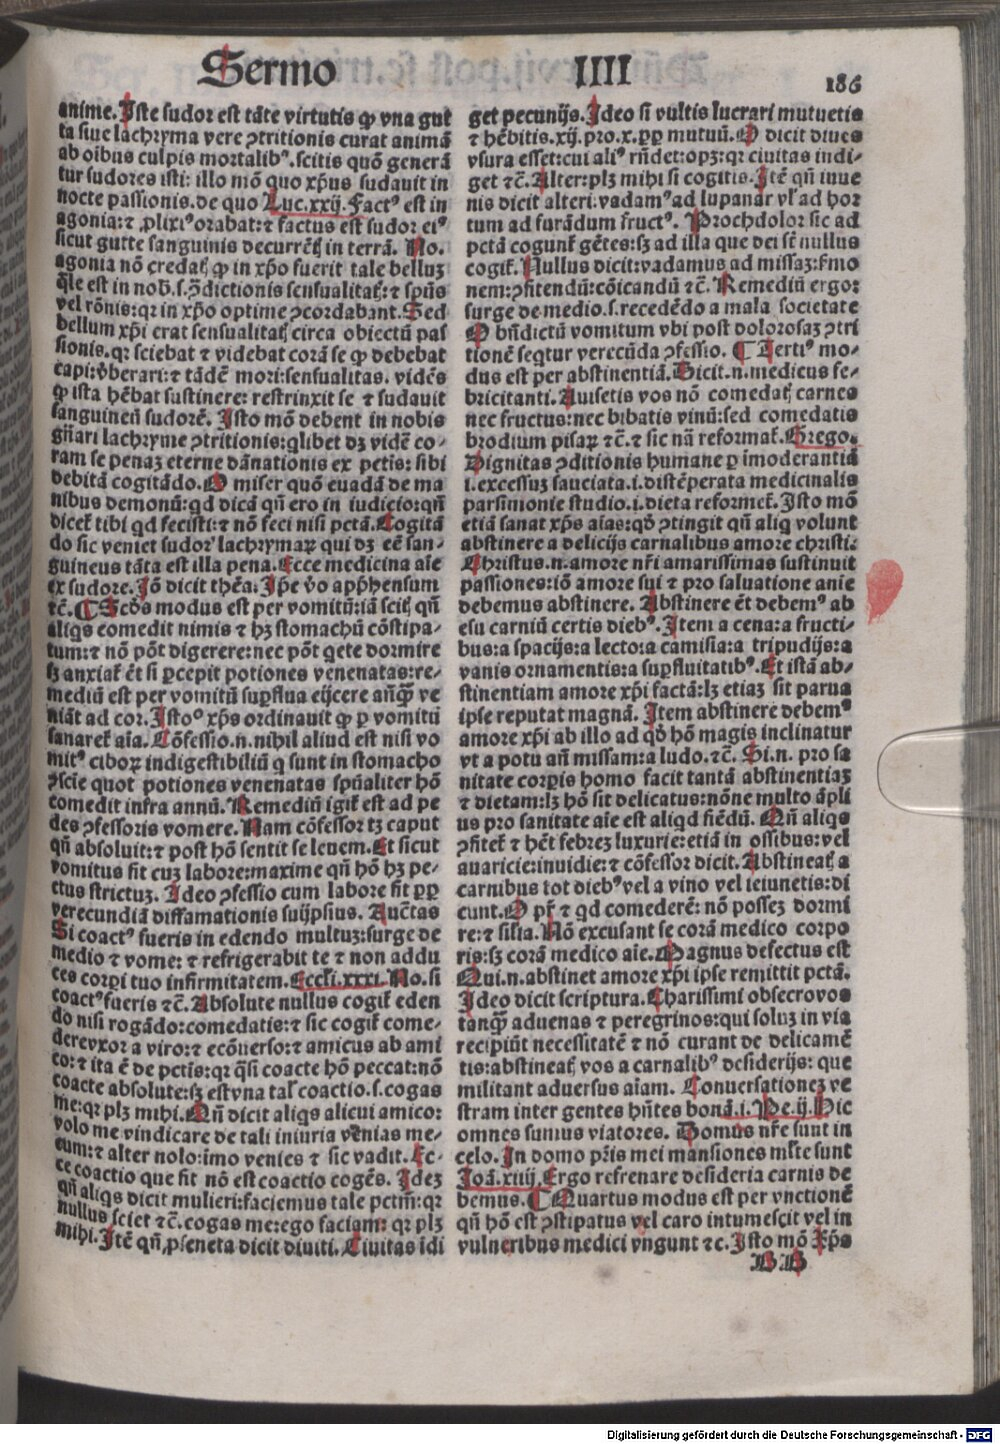 Sermo IIII 186
anime. Iste sudor est tāte virtutis ꝙ vna gut
ta siue lachryma vere ↄtritionis curat animā
ab oībus culpis mortalibꝰ. scitis quō generā
tur sudores isti: illo mō quo xp̄us sudauit in
nocte passionis. de quo Luc. xxij. Factꝰ est in
agonia: ⁊ ꝓlixiꝰ orabat: ⁊ factus est sudor eiꝰ
sicut gutte sanguinis decurrētꝭ in terrā. No.
agonia nō credatꝭ ꝙ in xp̄o fuerit tale belluꝫ
q̄le est in nob̄. s. ↄ̄dictionis sensualitatꝭ: ⁊ sp̄us
vel rōnis: qꝛ in xp̄o optime ↄcordabant. Sed
bellum xp̄i erat sensualitatꝭ circa obiectū pas
sionis. qꝛ sciebat ⁊ videbat corā se ꝙ debebat
capi: v̄berari: ⁊ tādē mori: sensualitas. vidēs
ꝙ ista hēbat sustinere: restrinxit se ⁊ sudauit
sanguineū sudorē. Isto mō debent in nobis
gn̄ari lachryme ↄtritionis: qlibet dꝫ vidē co-
ram se penaꝫ eterne dānationis ex petīs: sibi
debitā cogitādo. O miser quō euadā de ma
nibus demonū: qd dicā qn̄ ero in iudicio: qn̄
diceꝉ tibi qd fecisti: ⁊ nō feci nisi pctā. Cogitā
do sic veniet sudoꝛ lachrymaꝝ qui dꝫ eē san-
guineus tāta est illa pena. Ecce medicina aīe
ex sudore. Iō dicit thēa: Ip̄e v̄o app̄hensum
⁊c̄. ¶ Scd̄s modus est per vomitū: iā scitꝭ qn̄
aliqs comedit nimis ⁊ hꝫ stomachū cōstipa-
tum: ⁊ nō pōt digerere: nec pōt q̄ete dormire
sꝫ anxiaꝉ ēt si ꝑcepit potiones venenatas: re-
mediū est per vomitū suꝑflua eijcere anq̄ꝫ ve
niāt ad cor. Isto° xp̄s ordinauit ꝙ ꝑ vomitū
sanareꝉ aīa. Cōfessio. n. nihil aliud est nisi vo
mitꝰ ciboꝝ indigestibiliū q sunt in stomacho
ↄscīe quot potiones venenatas sp̄ualiter hō
comedit infra annū. Remediū igiꝉ est ad pe
des ↄfessoris vomere. Nam cōfessor tꝫ caput
qn̄ absoluit: ⁊ post hō sentit se leuem. Et sicut
vomitus fit cuꝫ labore: maxime qn̄ hō hꝫ pe-
ctus strictuꝫ. Ideo ↄfessio cum labore fit ꝓꝑ
verecundiā diffamationis suijpsius. Auctas
Si coactꝰ fueris in edendo multuꝫ: surge de
medio ⁊ vome: ⁊ refrigerabit te ⁊ non addu
ces corpi tuo infirmitatem. Eccli. xxxi. No. si
coactꝰ fueris ⁊c̄. Absolute nullus cogiꝉ eden
do nisi rogādo: comedatis: ⁊ sic cogiꝉ come-
dere vxor a viro: ⁊ ecōuerso: ⁊ amicus ab ami
co: ⁊ ita ē de pctīs: qꝛ q̄si coacte hō peccat: nō
coacte absolute: sꝫ est vna taꝉ coactio. s. cogas
me: qꝛ plꝫ mihi. Qn̄ dicit aliqs alicui amico:
volo me vindicare de tali iniuria venias me-
cum: ⁊ alter nolo: īmo venies ⁊ sic vadit. Ec-
ce coactio que fit nō est coactio cogēs. Ideꝫ
qn̄ aliqs dicit mulieri: faciemus tale pctm̄: qꝛ
nullus sciet ⁊c̄. cogas me: ego faciam: qꝛ plꝫ
mihi. Itē qn̄ ꝓseneta dicit diuiti. Ciuitas īdi
get pecunijs. Ideo si vultis lucrari mutuetis
⁊ hēbitis. xij. pro. x. ꝓꝑ mutuū. O dicit diues
vsura esset: cui aliꝰ rn̄det: opꝫ: qꝛ ciuitas indi-
get ⁊c̄. Alter: plꝫ mihi si cogitis. Itē qn̄ iuue
nis dicit alteri. vadamꝰ ad lupanar vꝉ ad hor
tum ad furādum fructꝰ. Prochdolor sic ad
pctā cogunꝉ gētes: sꝫ ad illa que dei sūt nullus
cogiꝉ. Nullus dicit: vadamus ad missaꝫ: ẜmo
nem: ↄfitendū: cōicandū ⁊c̄. Remediū ergo:
surge de medio. s. recedēdo a mala societate
O bn̄dictū vomitum vbi post dolorosaꝫ ↄtri
tionē seqtur verecūda ↄfessio. ¶ Tertiꝰ mo-
dus est per abstinentiā. Dicit. n. medicus fe-
bricitanti. Auisetis vos nō comedatꝭ carnes
nec fructus: nec bibatis vinū: sed comedatis
brodium pisaꝝ ⁊c̄. ⁊ sic nā reformaꝉ. Grego.
Dignitas ↄditionis humane ꝑ īmoderantiā
i. excessuꝫ sauciata. i. distēperata medicinalis
parsimonie studio. i. dieta reformeꝉ. Isto mō
etiā sanat xp̄s aīas: qd̄ ↄtingit qn̄ aliq volunt
abstinere a delicijs carnalibus amore christi:
Christus. n. amore nr̄i amarissimas sustinuit
passiones: iō amore sui ⁊ pro saluatione anīe
debemus abstinere. Abstinere ēt debemꝰ ab
esu carniū certis diebꝰ. Item a cena: a fructi-
bus: a spacijs: a lecto: a camisia: a tripudijs: a
vanis ornamentis: a suꝑfluitatibꝰ. Et istā ab-
stinentiam amore xp̄i factā: lꝫ etiaꝫ sit parua
ipse reputat magnā. Item abstinere debemꝰ
amore xp̄i ab illo ad qd̄ hō magis inclinatur
vt a potu an̄ missam: a ludo. ⁊c̄. Si. n. pro sa
nitate corpis homo facit tantā abstinentiaꝫ
⁊ dietam: lꝫ hō sit delicatus: nōne multo āpli
us pro sanitate aīe est aliqd fiēdū. Qn̄ aliqs
ↄfiteꝉ ⁊ hēt febreꝫ luxurie: etiā in ossibus: vel
auaricie: inuidie: ⁊ cōfessor dicit. Abstineatꝭ a
carnibus tot diebꝰ vel a vino vel ieiunetis: di
cunt. O pr̄ ⁊ qd comederē: nō posseꝫ dormi
re: ⁊ sīlia. Nō excusant se corā medico corpo
ris: sꝫ corā medico aīe. Magnus defectus est
Qui. n. abstinet amore xp̄i ipse remittit pctā.
Ideo dicit scriptura. Charissimi obsecro vos
tanq̄ꝫ aduenas ⁊ peregrinos: qui soluꝫ in via
recipiūt necessitatē ⁊ nō curant de delicamē
tis: abstineatꝭ vos a carnalibꝰ desiderijs: que
militant aduersus aīam. Conuersationeꝫ ve
stram inter gentes hn̄tes bonā. i. Pe. ij. Hic
omnes sumus viatores. Domus nr̄e sunt in
celo. In domo pr̄is mei mansiones mꝉte sunt
Ioā. xiiij. Ergo refrenare desideria carnis de
bemus. ¶ Quartus modus est per vnctionē
qn̄ hō est ↄstipatus vel caro intumescit vel in
vulneribus medici vngunt ⁊c. Isto mō Xp̄s
BB
Digitalisierung gefördert durch die Deutsche Forschungsgemeinschaft - DFG